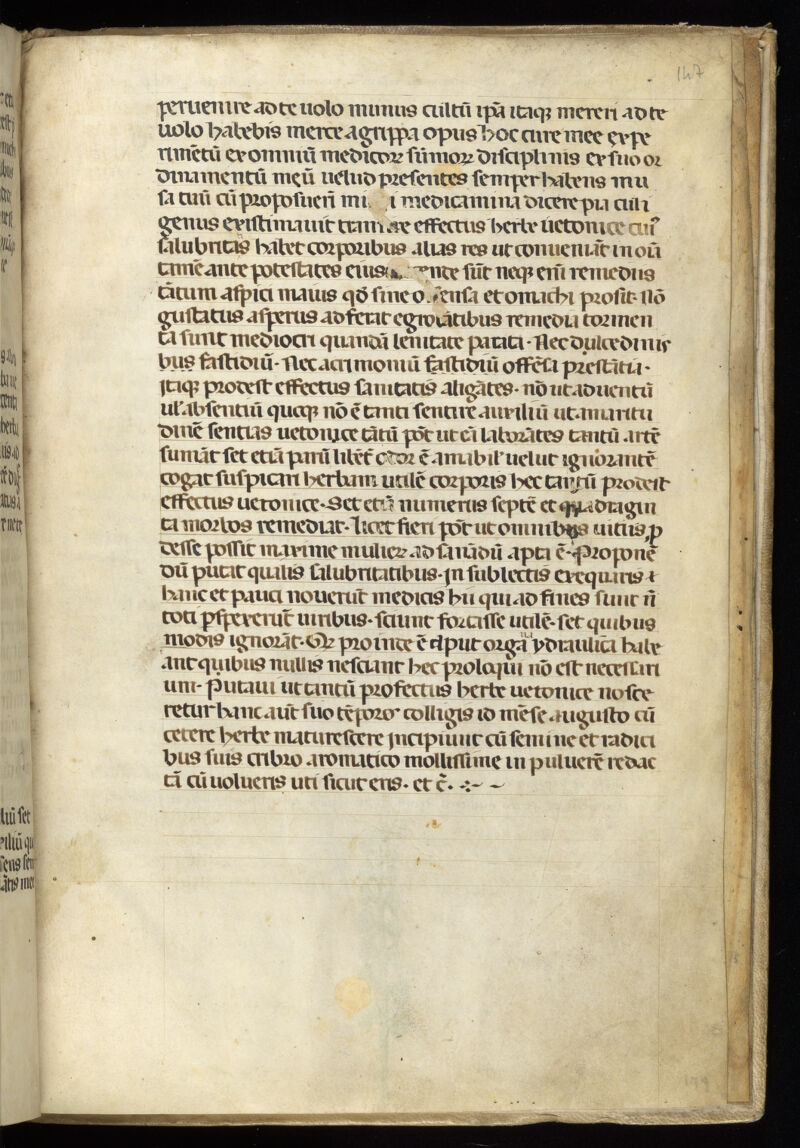 147
peruenire ad te uolo munus cultū ip̄a itaqꝫ mereri ad te
uolo habebis merce agrippa opus hoc cure mee expe
rimētū ex omniū medicoꝝ sūmoꝝ disciplinis ex suo or
dinamentū meū uelud presentes semper habens mu
sa tuū cū proposuerī mi i medicamina dicere pia cuili
genus existimauit tram effectus herbe uetonice cuiꝰ
salubritas habet corporibus alias res ut conueniāt in oū
tamē ante potestates eius sūt neqꝫ enī remediis
tātum aspici maius qd̄ sine o ensa et omachi prosit· nō
gustatus asperus adferat egrotātibus remedia tormen
ta sunt mediocri quandū lenitate patiti· Nec dulcedinis
bus fastidiū· Nec acrimoniū fastidiū offēsa prestātia·
itaqꝫ prodest effectus sanitatis aligātes· nō ut aduentū
ul' absentiū queqꝫ nō ē tanti sentire auxiliū ut amaritu
dinē sentias uetonice tātū pōt ut cū laborātes tantū artē
sumāt set etiā parū libēt odor ē amabil' uelut ignorantē
cogat suspicari herbam utilē corporis hec tantū prodest
effectus uetonice· Set etiā numerus septē et quadragin
ta morbos remediat· licet fieri pōt ut omnibus uitiis ꝓ
desse possit maxime mulieꝝ ad sanādū apta ē· Proponē
dū putat qualis salubritatibus· in sublectis exequaris ⁊
hanc et pauci nouerūt medicis hii qui ad fines sunt n̄
toti ꝑspexerūt uiribus· sciunt forcasse utilē· set quibus
modis ignorāt· Qꝝ proince ē capud orgā ydraulicā habe
ant quibus nullis nesciant hec proloqui nō est necessari
um· Putaui ut tantū profectus herbe uetonice nosce
retur hanc aūt suo tēpore colligis id mēse augusto cū
cetere herbe maturescere incipiunt cū semine et radici
bus suis cribro aromatico mollissime in puluerē redac
tā cū uolueris uti sicut eris· et c̄·